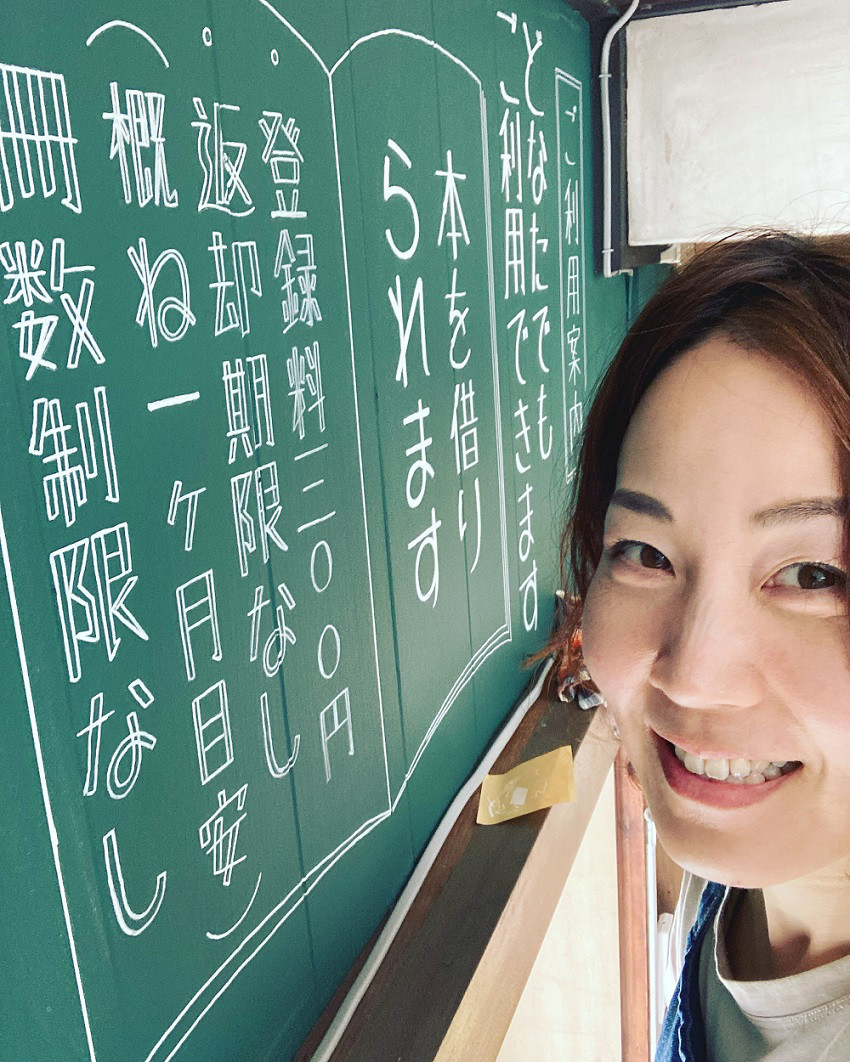 ご利用案内
どなたでも
ご利用できます
本を借り
られます
・登録料三〇〇円
・返却期限なし
(概ね一ヶ月目安)
冊数制限なし